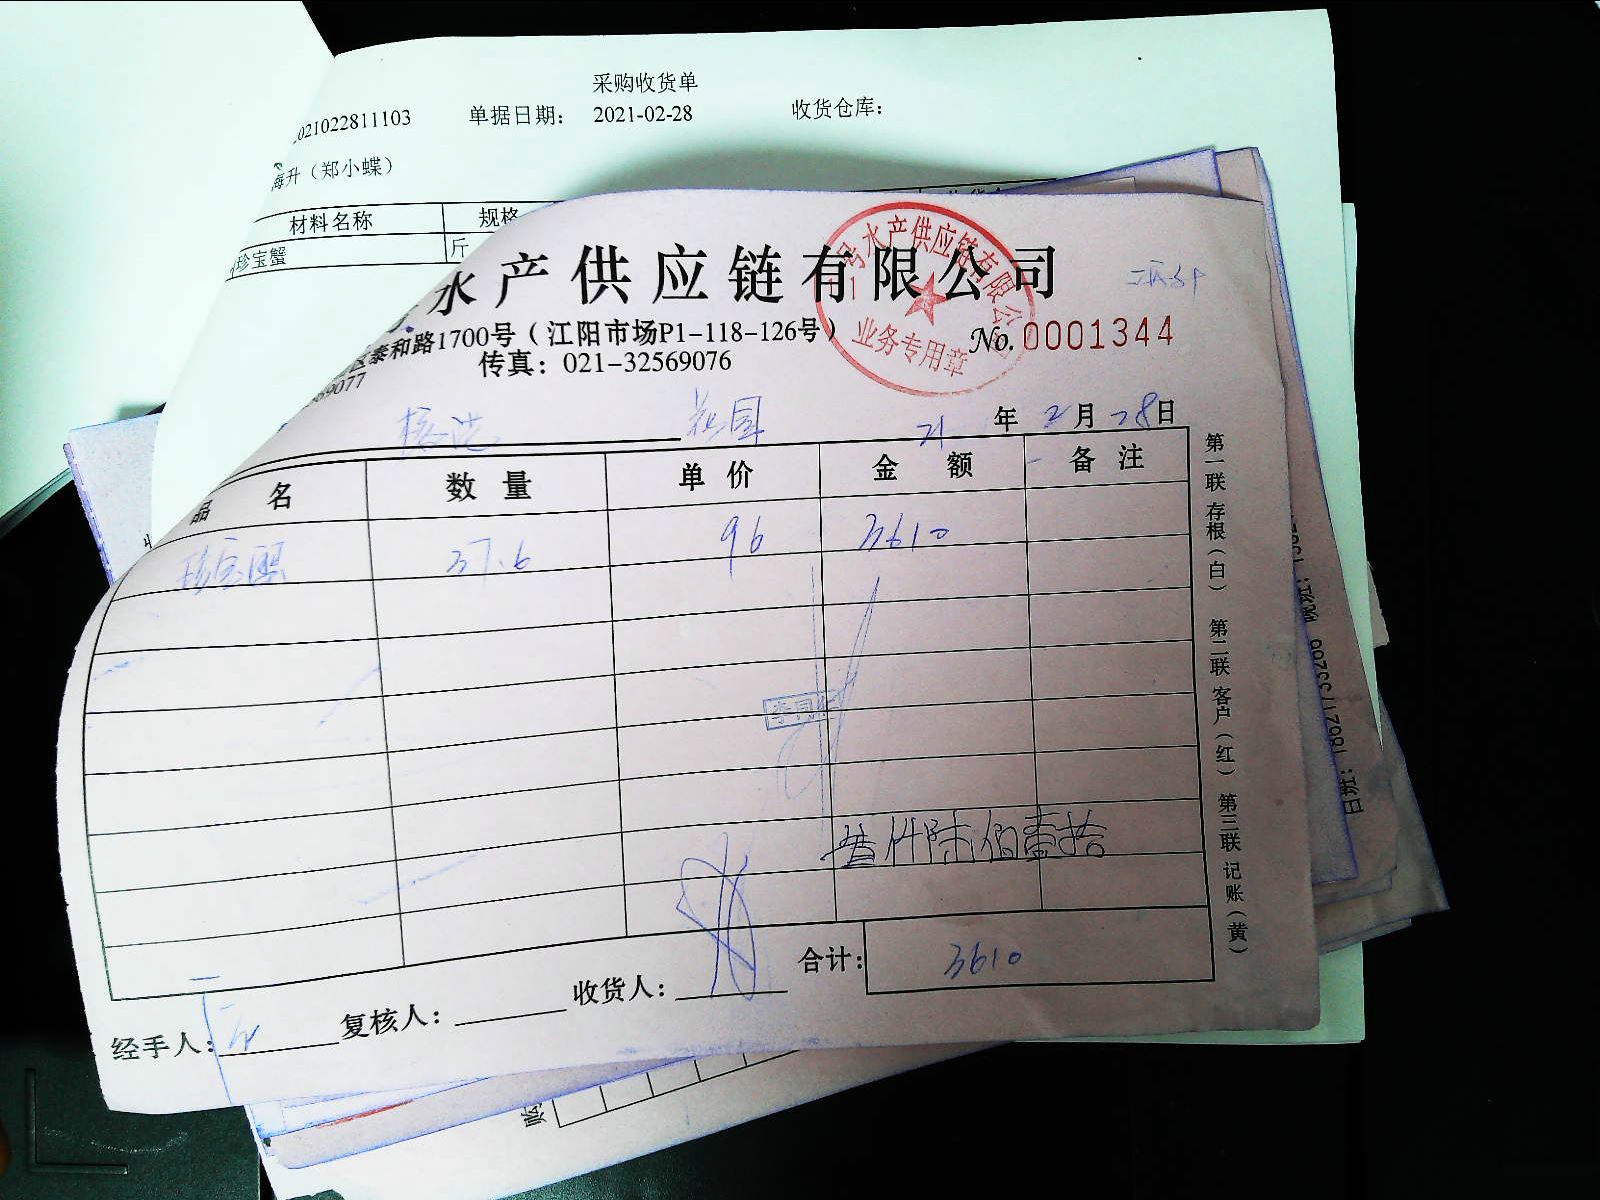 采购收货单
021022811103 单据日期： 2021-02-28 收货仓库：
海升（郑小蝶）
材料名称 规格
珍宝蟹 斤
水产供应链有限公司
号水产供应链有限公
业务专用章
区泰和路1700号（江阳市场P1-118-126号）
No. 0001344
传真：021-32569076
69077
21 年 2 月 28 日
品 名 数 量 单 价 金 额 备 注
珍宝蟹 37.6 96 3610
李同仁
叁仟陆佰壹拾
合计： 3610
经手人： 复核人： 收货人：
第一联 存根（白） 第二联 客户（红） 第三联 记账（黄）